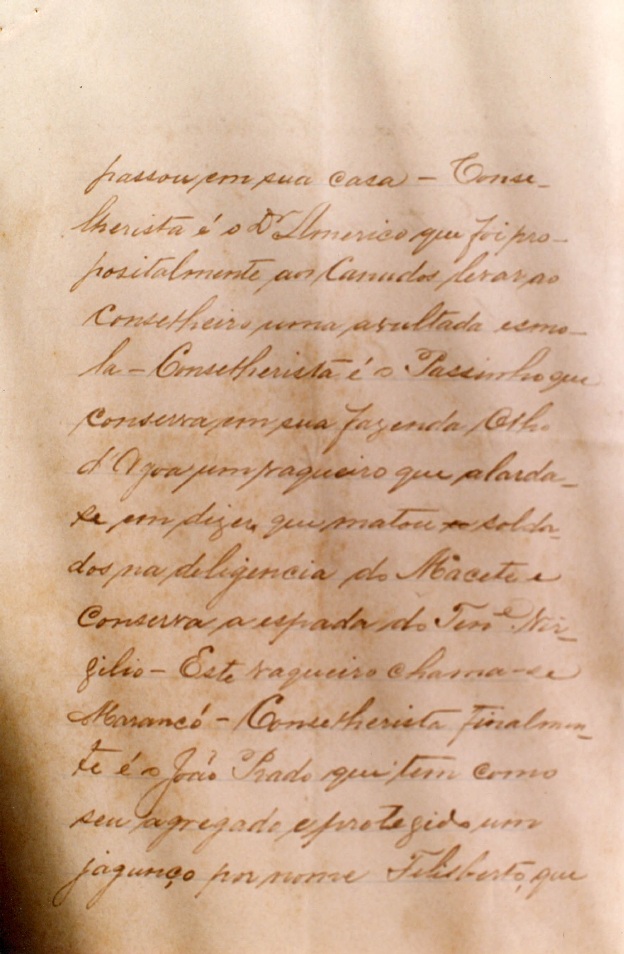 passou em sua casa – Conse-
lherista é o Dr Americo que foi pro-
positalmente aos Canudos levar ao
Conselheiro uma avultada esmo-
la – Conselherista é o Passinho que
conserva em sua fazenda Olho
d'Agoa um vaqueiro que alarda-
se em dizer que matou solda-
dos na deligencia do Macete e
conserva a espada do Tene Vir-
gilio – Este vaqueiro chama-se
Marancó – Conselherista finalmen-
te é o João Prado que tem como
seu agregado e protegido um
jagunço por nome Felisberto, que